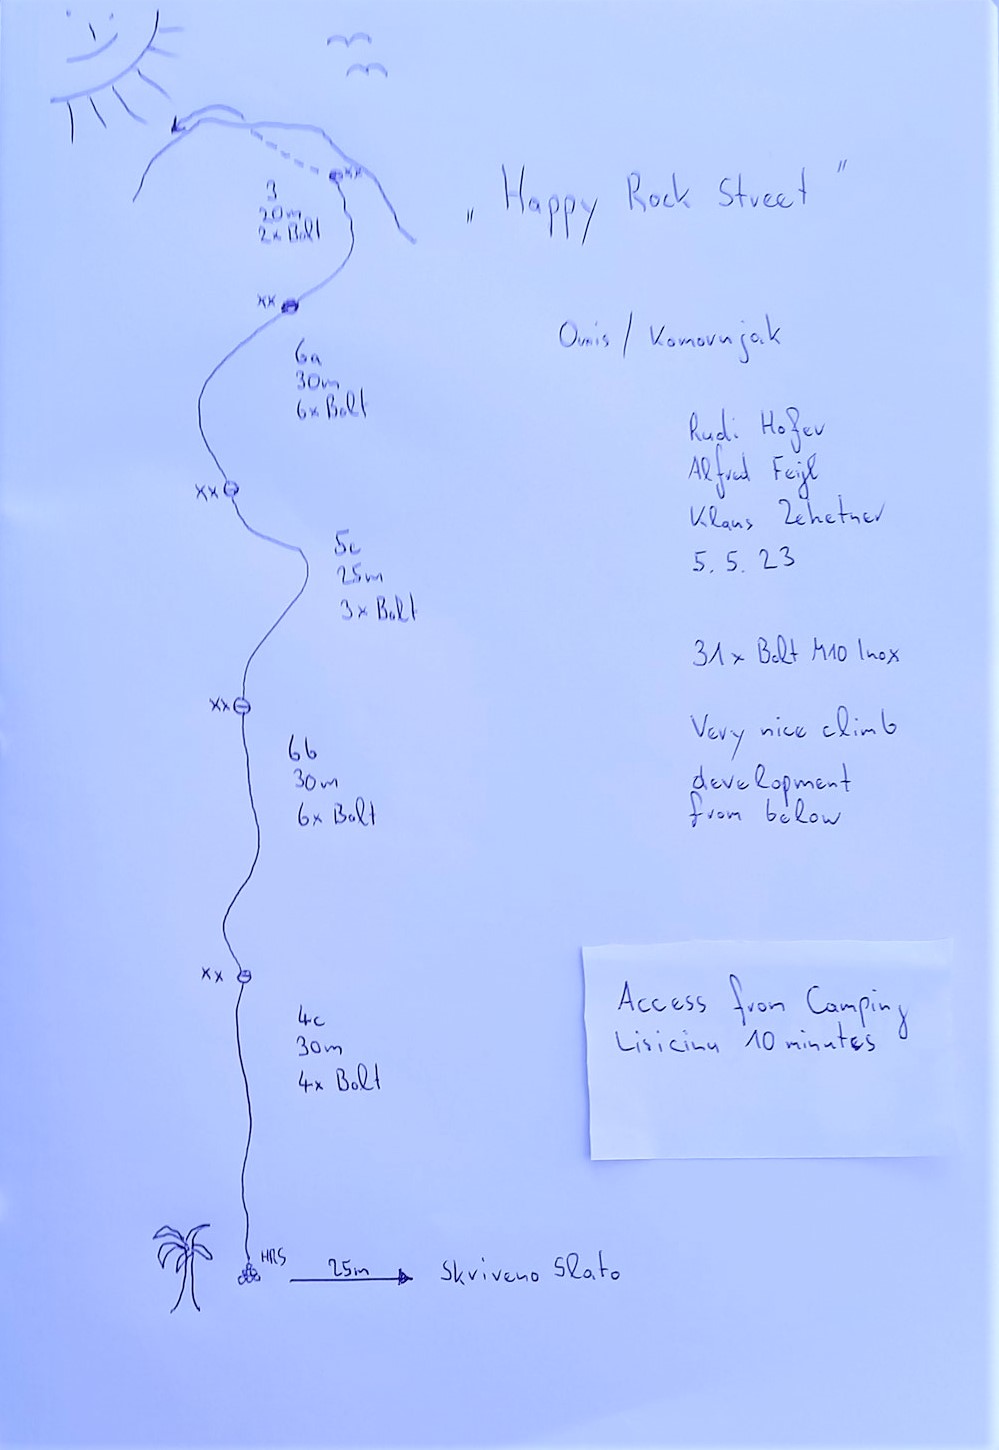 „ Happy Rock Street "
Omis / Komovnjak
Rudi Hofer
Alfred Feijl
Klaus Zehetner
5. 5. 23
31x Bolt M10 Inox
Very nice climb
development
from below
Access from Camping
Lisicinu 10 minutes
xx
3
20m
2x Bolt
xx
6a
30m
6x Bolt
xx
5c
25m
3x Bolt
xx
6b
30m
6x Bolt
xx
4c
30m
4x Bolt
HRS
25m
Skriveno Slato